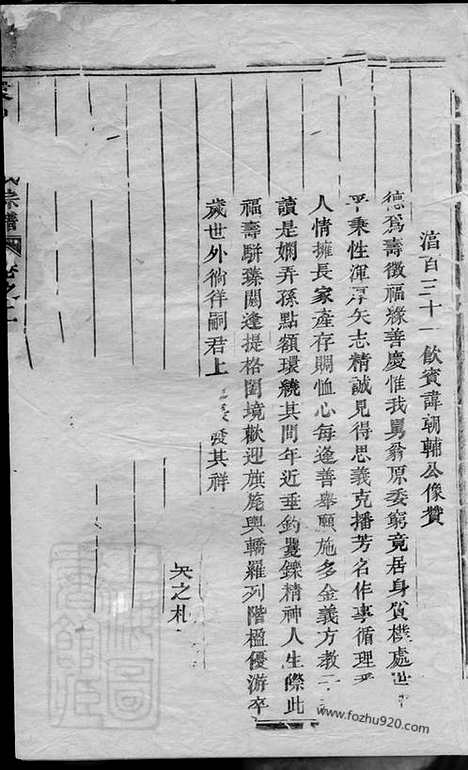 湇百三十一飲賓諱朝輔公像贊
德爲壽徵福緣善慶惟我舅翁原委窮竟居身質樸處世
平秉性渾厚矢志精誠見得思義克播芳名作事循理
人情擁長家產存賙恤心每逢善舉願施多金義方教子
讀是嫻弄孫點額環繞其間年近垂釣矍鑠精神人生際此
福壽駢臻閼逢提格閭境歡迎旗旄輿轎羅列階楹優游卒
歲世外徜徉嗣君上 愛其祥
矢之札
宗譜 卷之二
www.fozhu920.com